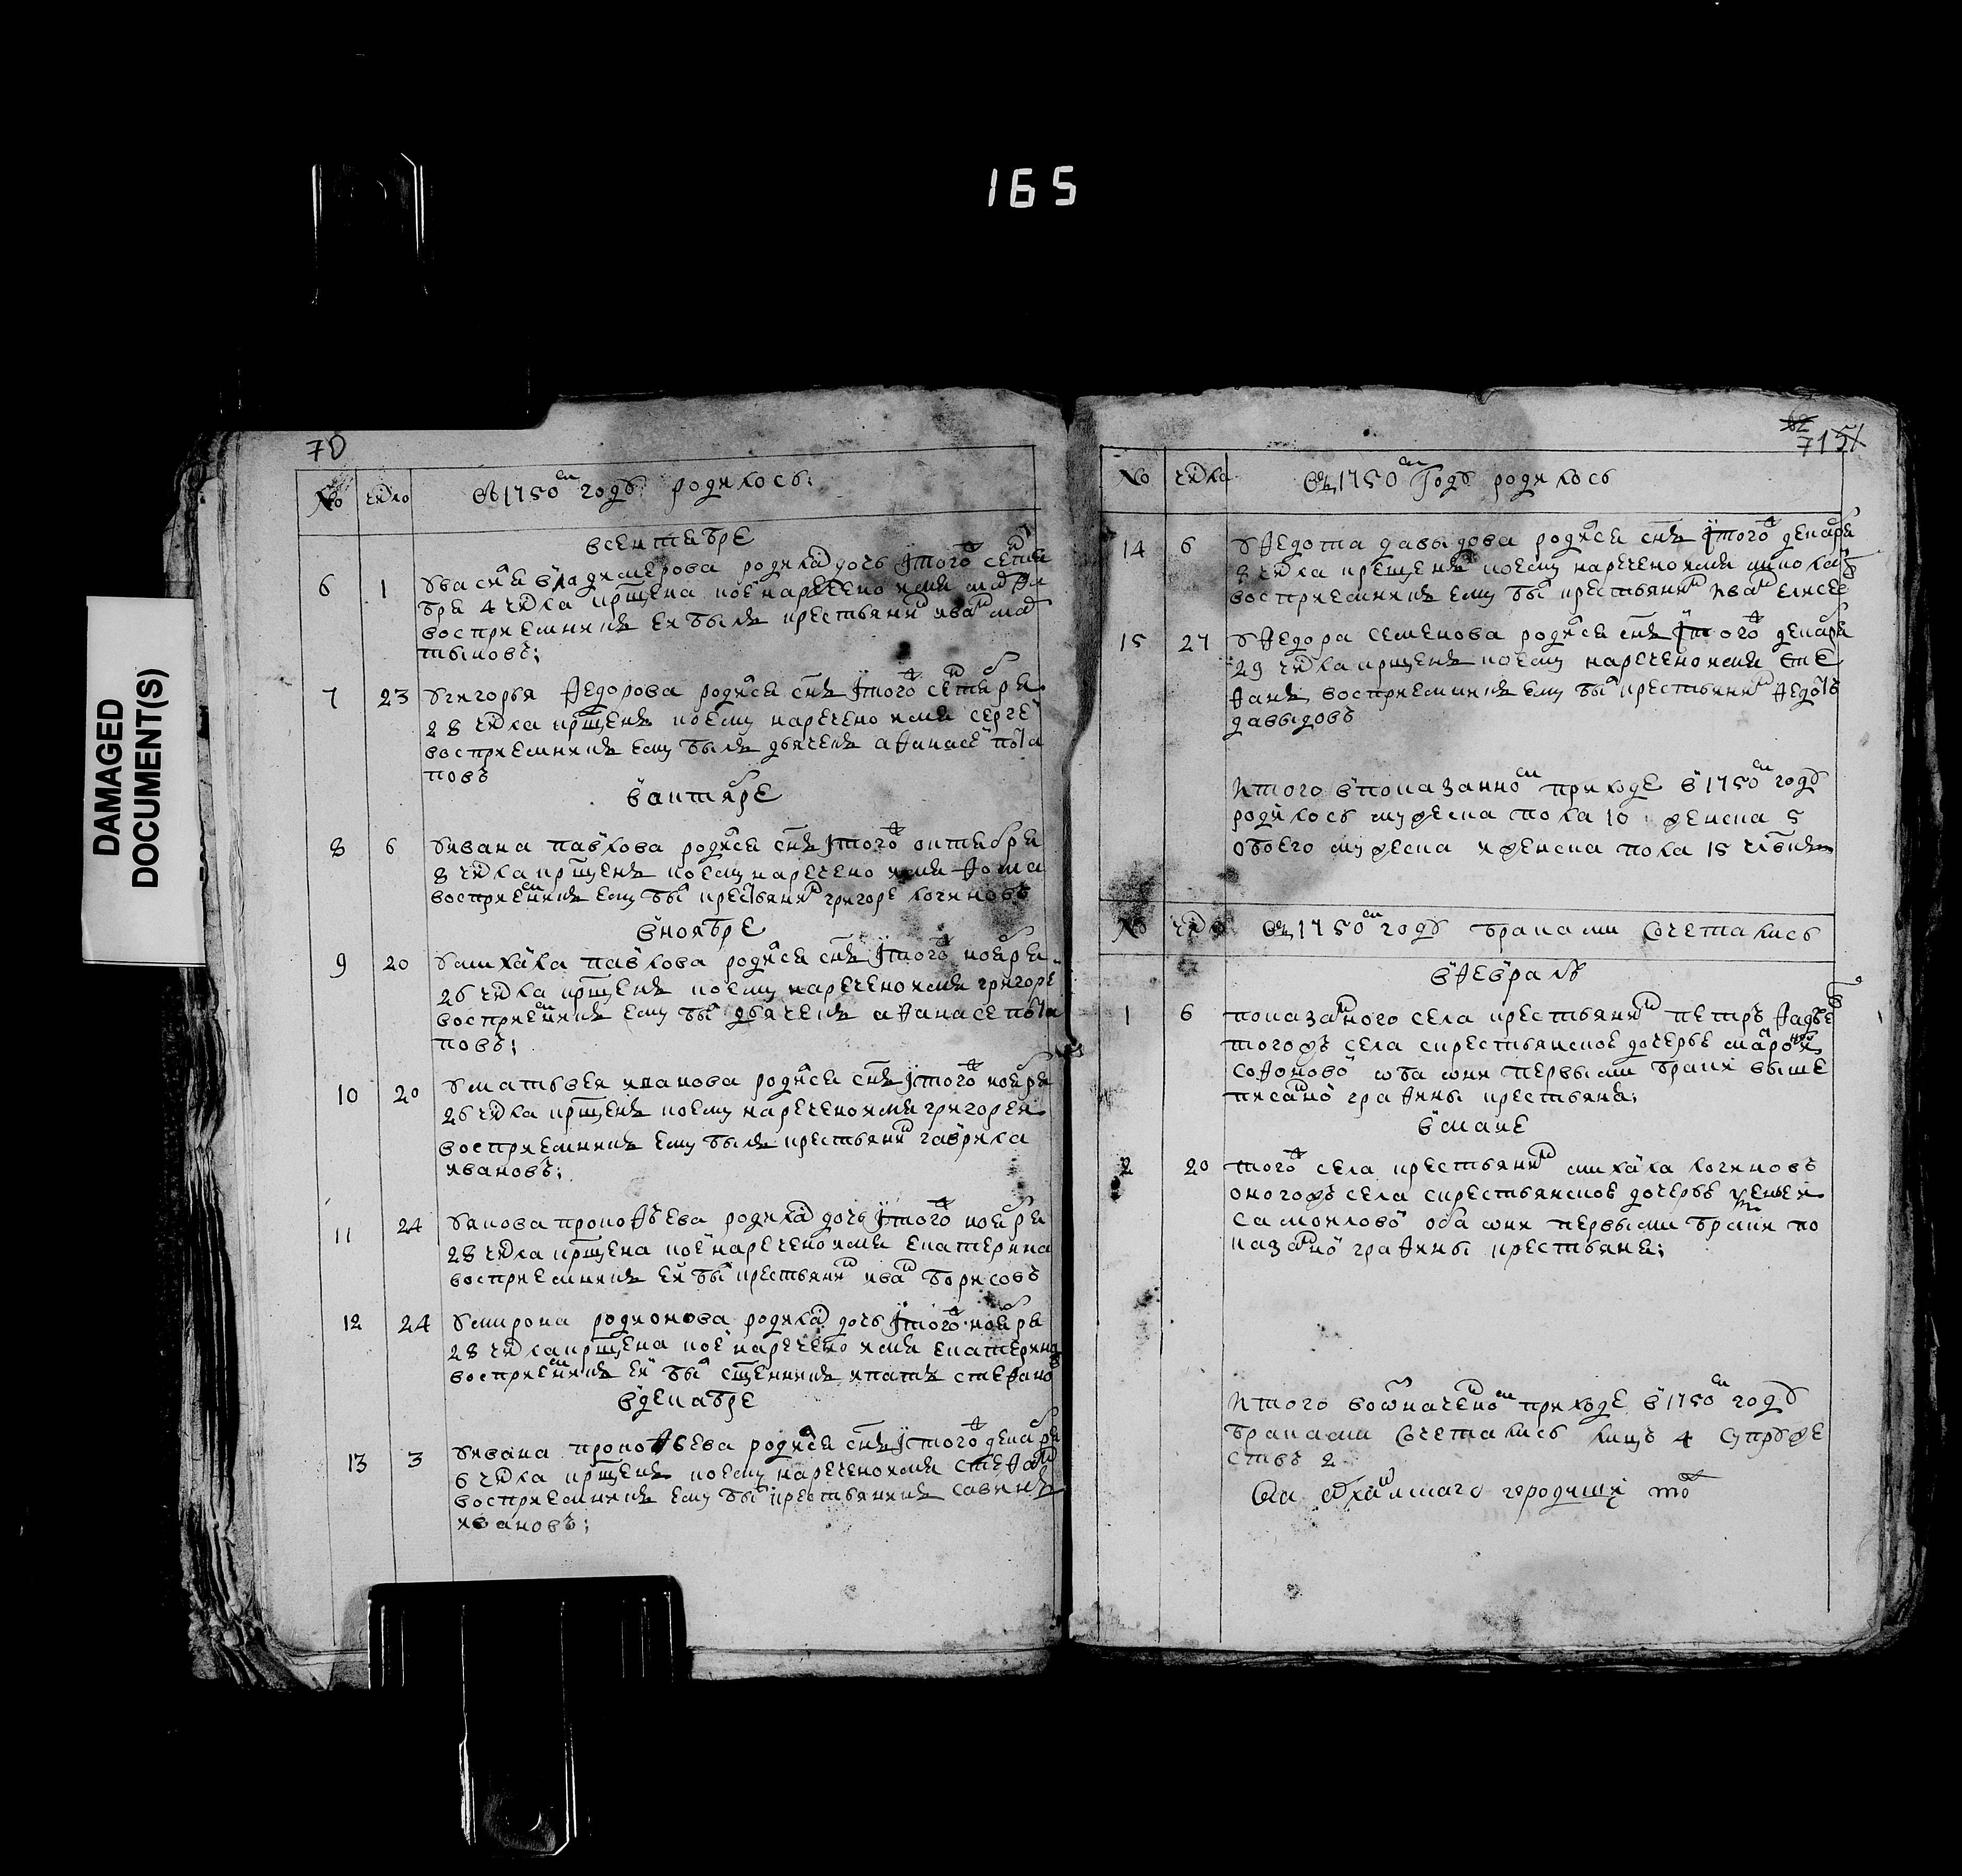 165
DAMAGED
DOCUMENT(S)
70
№ число в 1750м году родилось:
в сентебре
6 1 у васил владимерова родилас дочь и того сентя
бре 4 числа крщена и коей наречено имя матре
восприемникъ еи былъ крестьянин иван мат
ковъ;
7 23 у григорья федорова родися снъ и того сентебря
28 числа крщенъ и коему наречено имя сергеи
восприемникъ ему былъ дьячекъ афанасеи пота
повъ
в октябре
8 6 у ивана павлова родися снъ и того октебря
8 числа крщенъ коему наречено имя фома
восприемникъ ему бы крестьянин григореи логиновъ
в ноябре
9 20 у михаила павлова родися снъ и того ноября
26 числа крщенъ коему наречено имя григореи
восприемникъ ему бы дьячекъ афанасе пота
повъ;
10 20 у матвея иванова родися снъ и того ноября
26 числа крщенъ коему наречено имя григореи
восприемникъ ему былъ крестьянин гаврила
ивановъ;
11 24 у якова прокофьева родилас дочь и того ноября
28 числа крщена коеи наречено имя екатерина
восприемникъ еи бы крестьянин иван борисовъ
12 24 у мирона родионова родилас дочь и того ноября
28 числа крщена коеи наречено имя екатерина
восприемникъ еи бы сщенникъ ипатъ стефанов
в декабре
13 3 у ивана прокофьева родися снъ и того декабря
6 числа крщенъ коему наречено имя стефан
восприемникъ ему бы крестьянинъ савинъ
ивановъ;
71
№ число въ 1750м году родилось
14 6 у федота давыдова родися снъ и того декабря
8 числа крещенъ коему наречено имя никола
восприемникъ ему бы крестьянин иван елисее
15 27 у федора семенова родися снъ и того декабря
29 числа крщенъ коему наречено имя сте
фанъ восприемникъ ему бы крестьянин федотъ
давыдовъ
Итого в показанном приходе в 1750м году
родилось мужеска пола 10 женска 5
обоего мужеска и женска пола 15 члвкъ
№ число въ 1750м году браками сочетались
в феврале
1 6 показанного села крестьянин петръ фадѣев
тогожъ села с крестьянскою дочерью
софоновой оба они первыми браки выше
писанной графини крестьяне;
в маие
2 20 того села крестьянин михаила логиновъ
оногожъ села с крестьянскою дочерью
самоиловой оба они первыми браки по
казанной графини крестьяне;
Итого во означенном приходе в 1750м году
браками сочетались лицъ 4 супруже
ствъ 2
городища то